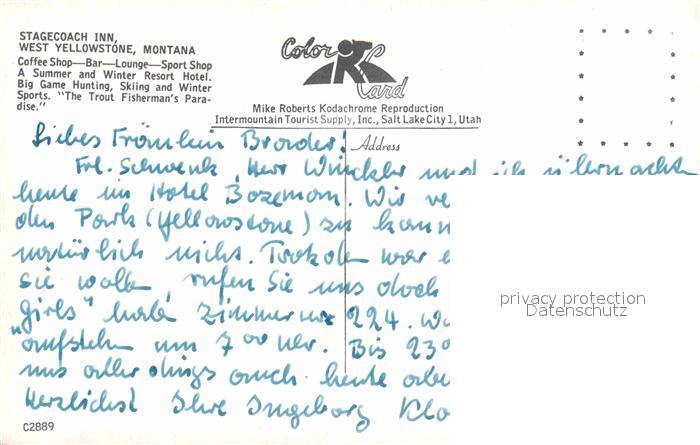 STAGECOACH INN,
WEST YELLOWSTONE, MONTANA
Coffee Shop—Bar—Lounge—Sport Shop
A Summer and Winter Resort Hotel.
Big Game Hunting, Skiing and Winter
Sports. "The Trout Fisherman's Para-
dise."
Color Card
Mike Roberts Kodachrome Reproduction
Intermountain Tourist Supply, Inc., Salt Lake City 1, Utah
Address
Liebes Fräulein Broader!
Frl. Schwenk, Herr Winckler und ich übernachten
heute im Hotel Bozeman. Wir
den Park (Yellowstone) zu
natürlich nicht. Trotzdem war
sie wollen, rufen Sie uns doch
"girls" hab. Zimmer nr 224.
aufstehen um 7 00 Uhr. Bis 23
uns allerdings auch heute
Herzlichst Ihre Ingeborg Klo
privacy protection
Datenschutz
C2889